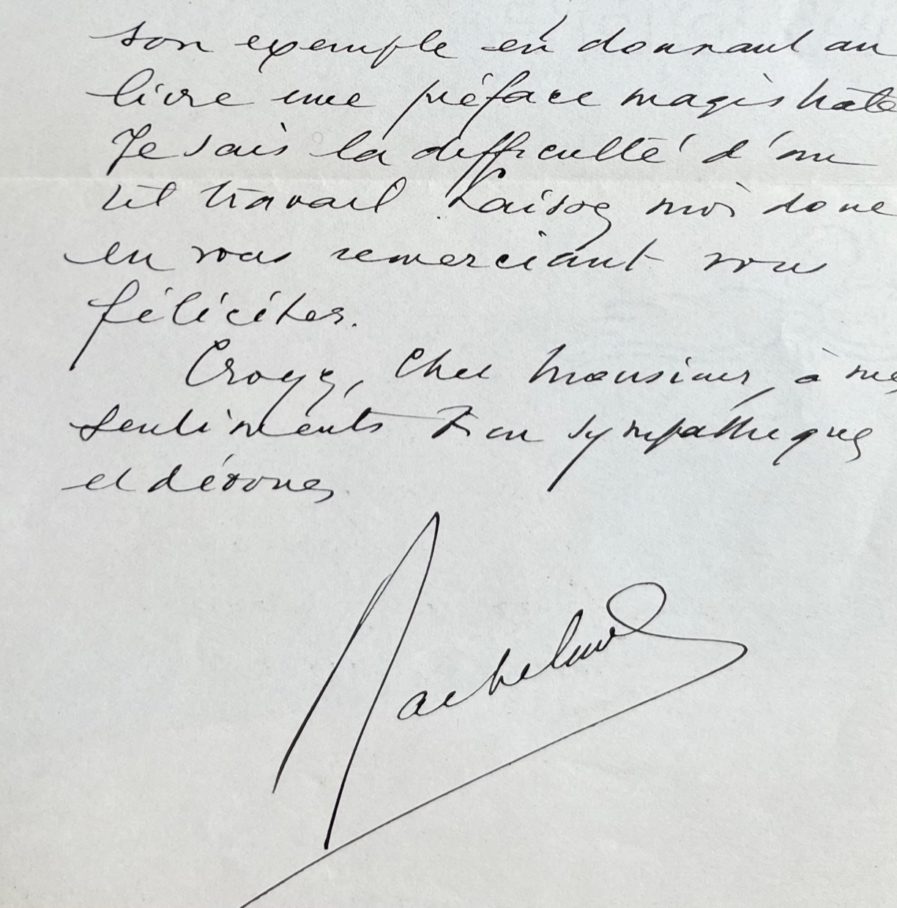 son exemple en donnant au
livre une préface magistrale
Je sais la difficulté d'un
tel travail. Laissez moi donc
en vous remerciant vous
féliciter.
Croyez, cher Monsieur, à mes
sentiments bien sympathiques
et dévoués.
Bachelard